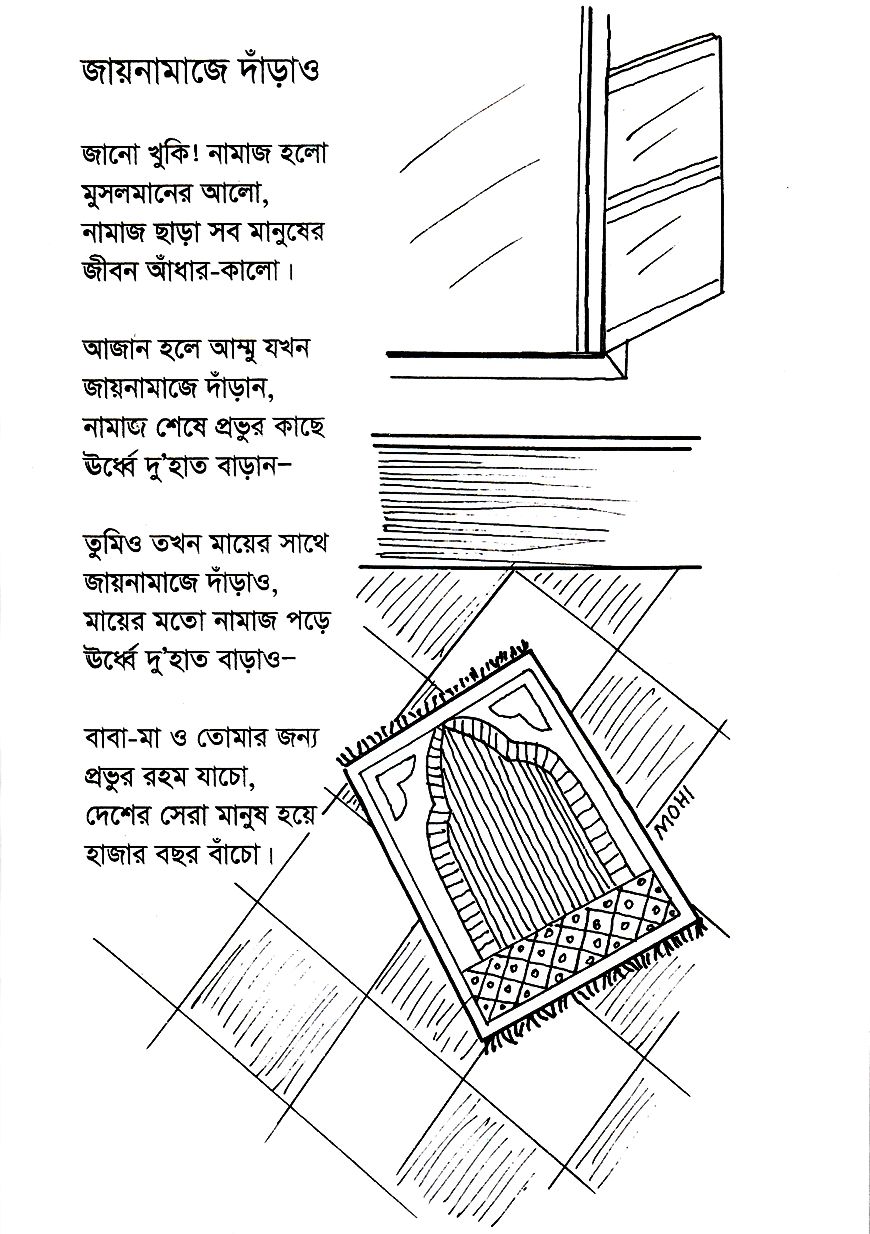 জায়নামাজে দাঁড়াও
জানো খুকি! নামাজ হলো
মুসলমানের আলো,
নামাজ ছাড়া সব মানুষের
জীবন আঁধার-কালো।
আজান হলে আম্মু যখন
জায়নামাজে দাঁড়ান,
নামাজ শেষে প্রভুর কাছে
ঊর্ধ্বে দু'হাত বাড়ান–
তুমিও তখন মায়ের সাথে
জায়নামাজে দাঁড়াও,
মায়ের মতো নামাজ পড়ে
ঊর্ধ্বে দু'হাত বাড়াও–
বাবা-মা ও তোমার জন্য
প্রভুর রহম যাচো,
দেশের সেরা মানুষ হয়ে
হাজার বছর বাঁচো।
MOHI